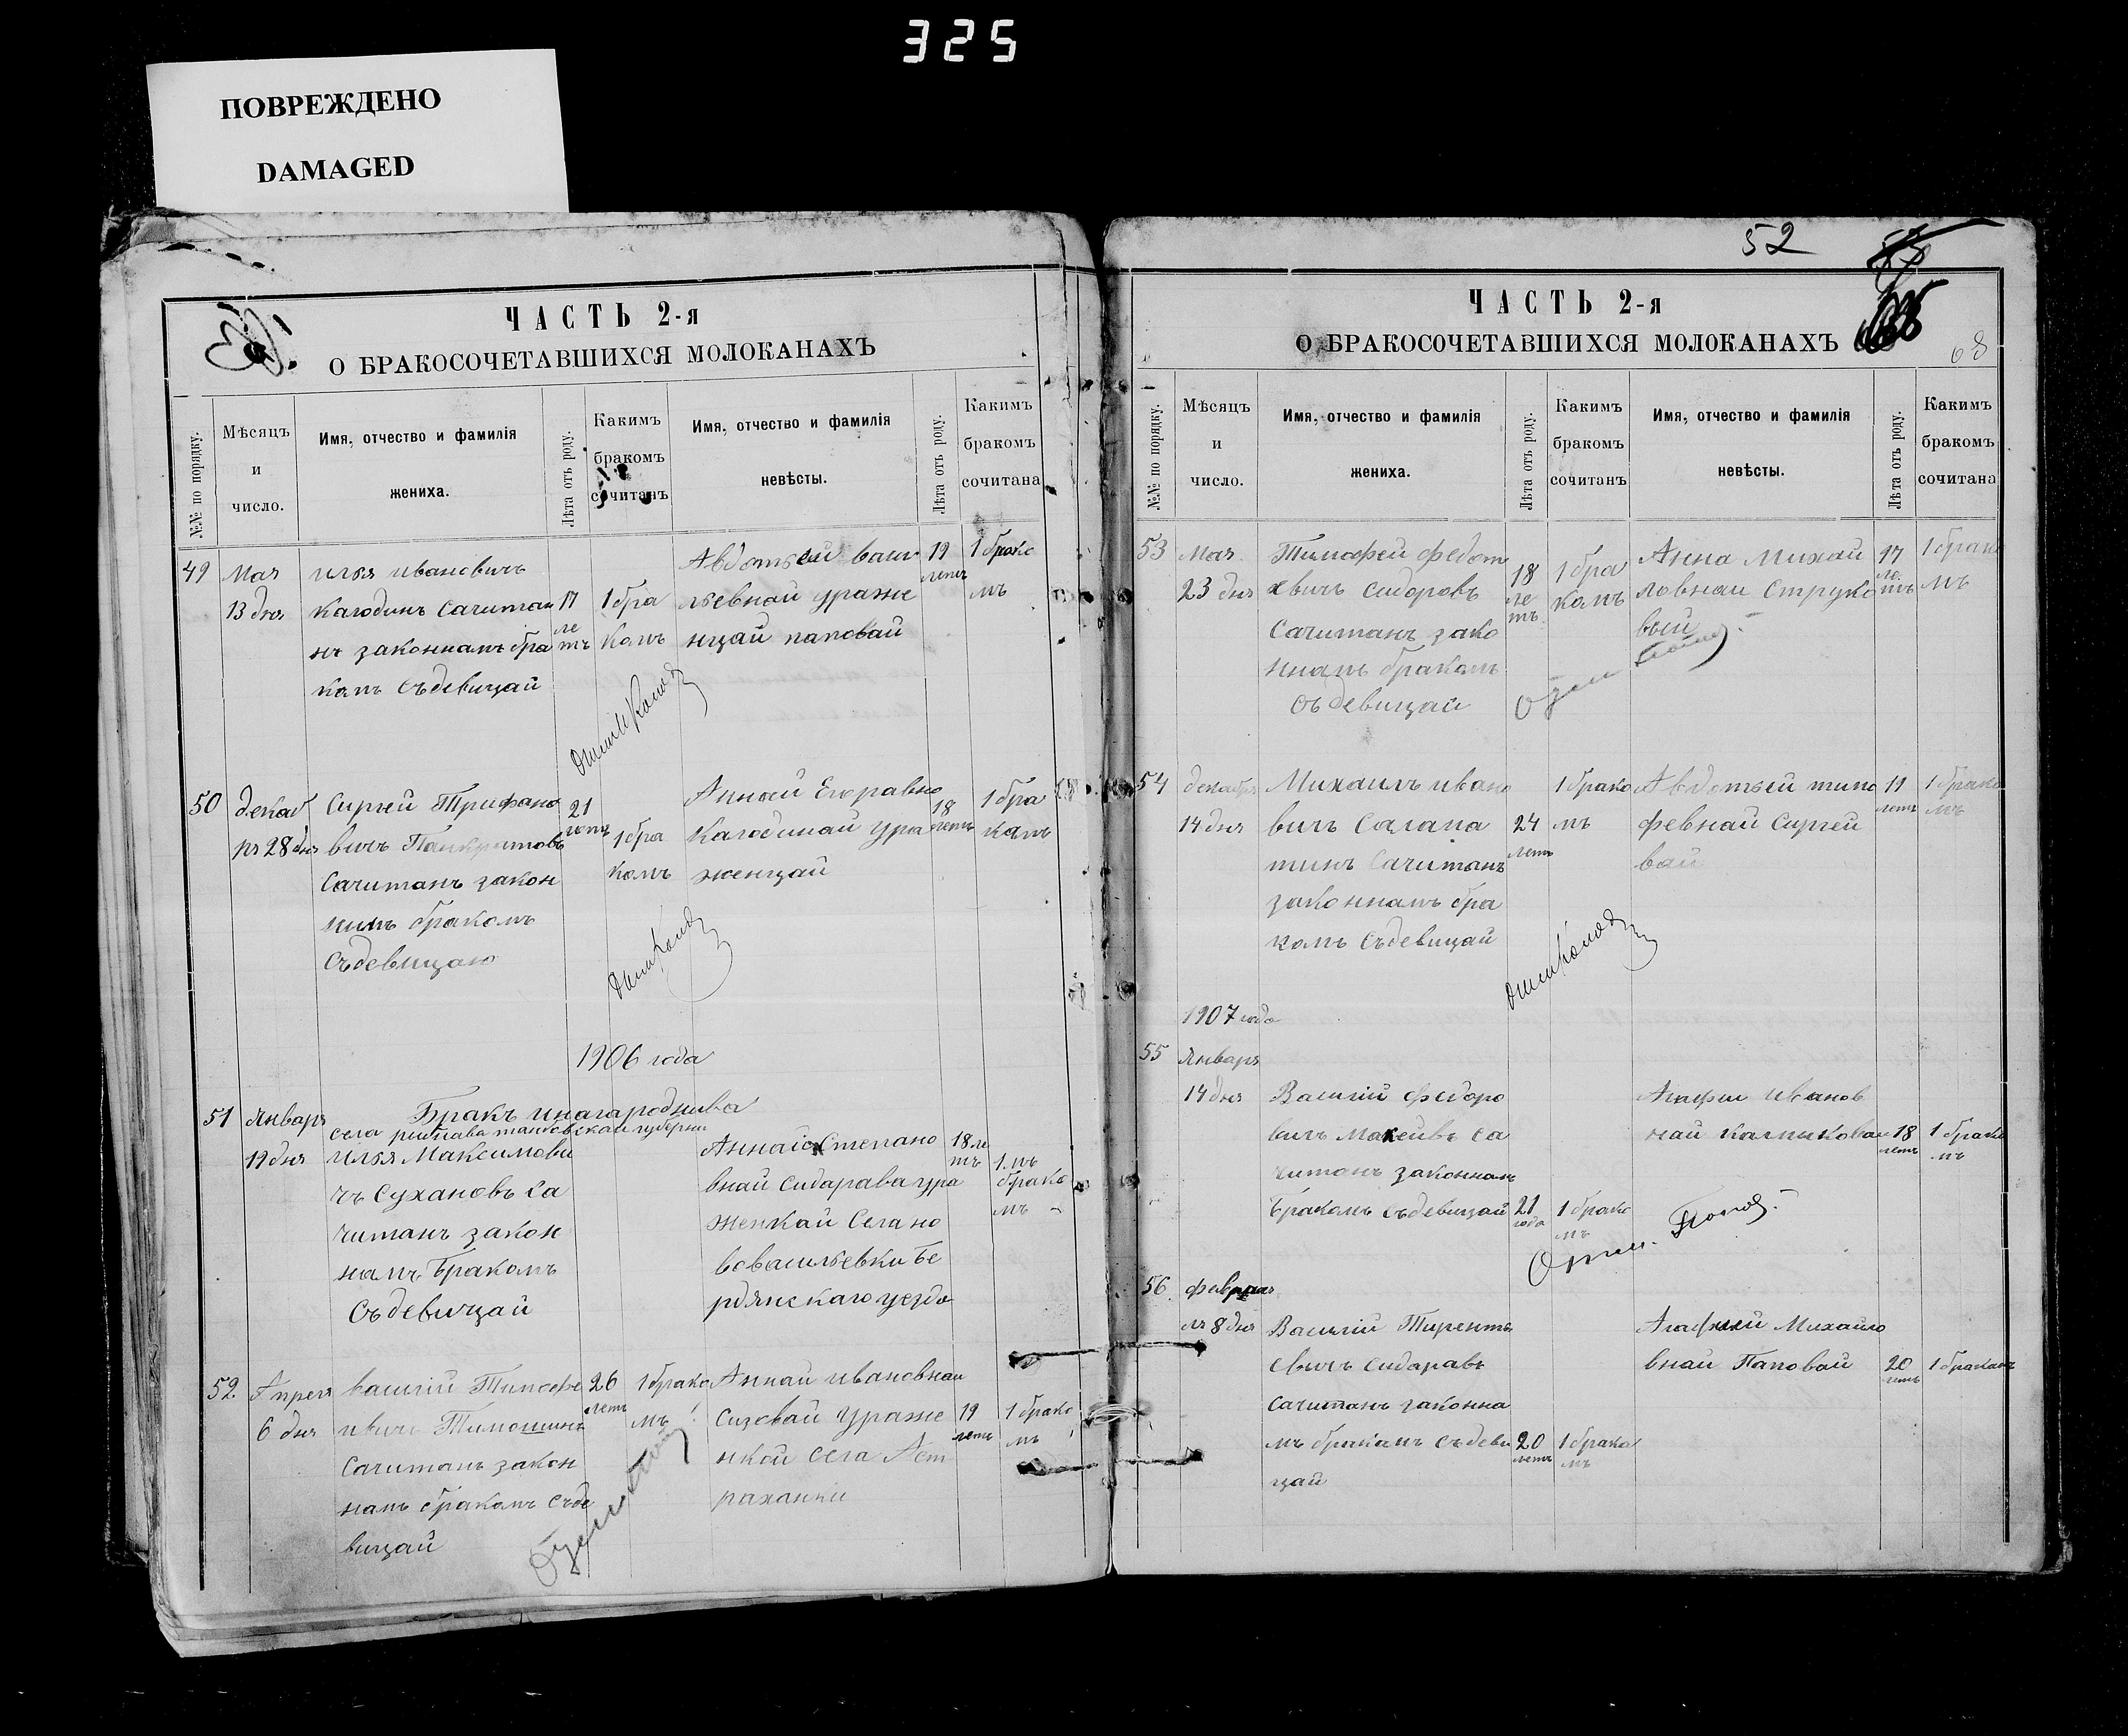 325
ПОВРЕЖДЕНО
DAMAGED
ЧАСТЬ 2-я
О БРАКОСОЧЕТАВШИХСЯ МОЛОКАНАХЪ
№№ по порядку.
Мѣсяцъ
и
число.
Имя, отчество и фамилія
жениха.
Лѣта отъ роду.
Какимъ
бракомъ
сочитанъ
Имя, отчество и фамилія
невѣсты.
Лѣта отъ роду.
Какимъ
бракомъ
сочитана
49
Мая
13 дня
илья ивановичъ
калодинъ сачитан
нъ законнамъ бра
камъ съдевицай
17
ле
тъ
1 бра
камъ
Авдотьей васи
льевнай ураже
нцай паповай
19
летъ
1 брако
мъ
50
декаб
ря 28 дня
Сиргей Трифано
вичъ Панкратовъ
Сачитанъ закон
нимъ бракомъ
Съдевицаю
21
летъ
1 бра
комъ
Аннай Егоравно
Калодинай ура
женцай
18
летъ
1 бра
камъ
1906 года
51
Январь
19 дня
Бракъ инагароднива
илья Максимови
чъ Сухановъ са
читанъ закон
намъ Бракомъ
Съдевицай
Аннай Степано
внай Сидарава ура
женкай Села но
вовасильевки Бе
рдянскаго уезда
18 ле
тъ
1 мъ
брако
мъ
52
Апреля
6 дня
василий Тимофе
ивичъ Тимошинъ
Сачитанъ закон
намъ бракамъ Съде
вицай
26
летъ
1 брако
мъ
Аннай ивановнаи
Сизовай ураже
нкой села Аст
раханки
19
летъ
1 брако
мъ
52
68
ЧАСТЬ 2-я
О БРАКОСОЧЕТАВШИХСЯ МОЛОКАНАХЪ
№№ по порядку.
Мѣсяцъ
и
число.
Имя, отчество и фамилія
жениха.
Лѣта отъ роду.
Какимъ
бракомъ
сочитанъ
Имя, отчество и фамилія
невѣсты.
Лѣта отъ роду.
Какимъ
бракомъ
сочитана
53
Мая
23 дня
Тимофей федот
евичъ сидоровъ
Сачитанъ зако
ннамъ бракомъ
съ девицай
18
ле
тъ
1 бра
комъ
Анна Михай
ловнаи Струко
вый
17
ле
тъ
1 брако
мъ
54
декабря
14 дня
Михаилъ ивано
вичъ Салапа
тинъ Сачитанъ
законнамъ бра
комъ Съдевицай
24
летъ
1 брако
мъ
Авдотьей тимо
февнай Сиргей
вай
19
летъ
1 брако
мъ
1907 года
55
Январь
14 дня
Василий Федоро
вичъ Макеивъ са
читанъ законнам
Бракомъ съдевицай
21
года
1 брако
мъ
Агафии Иванов
най калмыковаи
18
летъ
1 брако
мъ
56
февра
ля 8 дня
Василий Тиренть
евичъ сидаравъ
сачитанъ законна
мъ бракамъ съдеви
цай
20
летъ
1 брако
мъ
Агафией Михайло
внай Паповай
20
летъ
1 бракамъ